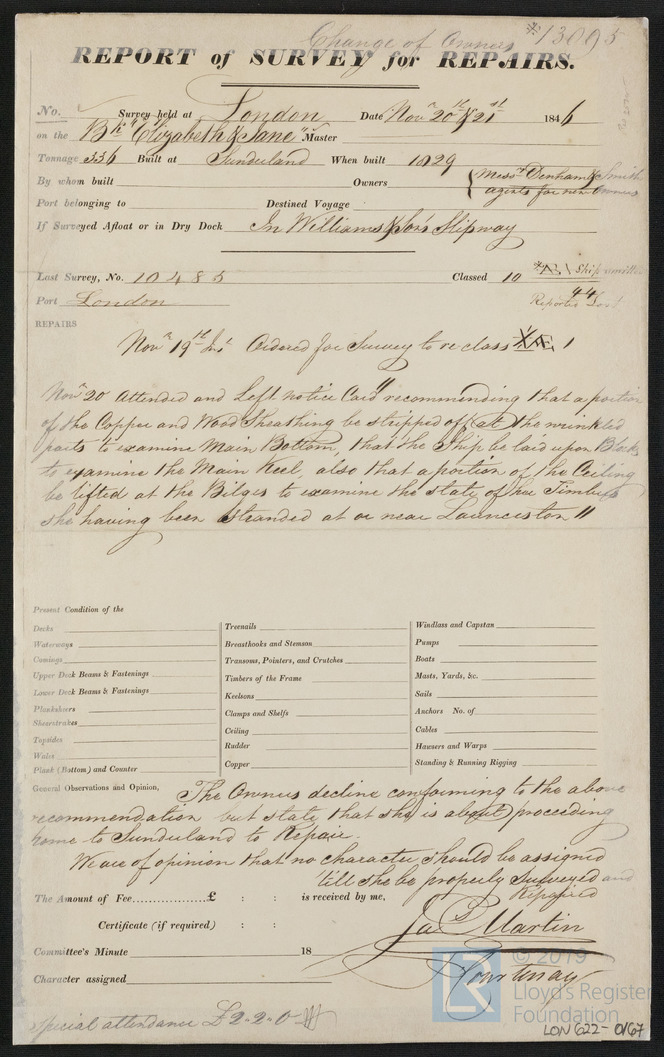 Change of Owners
*13095
REPORT of SURVEY for REPAIRS.
No. Survey held at London Date Novr 20th & 21st 1846
on the Bk "Elizabeth & Jane" Master
Tonnage 336 Built at Sunderland When built 1829
By whom built Owners { Messrs Denham & Smith
agents for new Owners
Port belonging to Destined Voyage
If Surveyed Afloat or in Dry Dock In Williams & Son's Slipway
Last Survey, No. 10485 Classed 10 *Æ 1
Port London Reported Lost 44
REPAIRS
Novr 19th Inst Ordered for Survey to re class *Æ 1
Novr 20 Attended and Left notice Card "recommending that a portion
of the Copper and Wood Sheathing be stripped off at the wrinkled
parts to examine Main Bottom, that the Ship be laid upon Blocks
to examine the Main Keel, also that a portion of the Ceiling
be lifted at the Bilges to examine the state of her Timbers
she having been stranded at or near Launceston "
Present Condition of the
Decks
Waterways
Comings
Upper Deck Beams & Fastenings
Lower Deck Beams & Fastenings
Planksheers
Sheerstrakes
Topsides
Wales
Plank (Bottom) and Counter
Treenails
Breasthooks and Stemson
Transoms, Pointers, and Crutches
Timbers of the Frame
Keelsons
Clamps and Shelfs
Ceiling
Rudder
Copper
Windlass and Capstan
Pumps
Boats
Masts, Yards, &c.
Sails
Anchors No. of
Cables
Hawsers and Warps
Standing & Running Rigging
General Observations and Opinion, The Owners decline conforming to the above
recommendation but state that she is about proceeding
home to Sunderland to Repair.
We are of opinion that no character should be assigned
'till she be properly Surveyed and
Repaired
The Amount of Fee............... £ : : is received by me,
Jas Martin
Certificate (if required) : :
Committee's Minute 18
Courtenay
Character assigned
Special attendance £2-2-0
© 2019
Lloyd's Register
Foundation
LON 622-0167